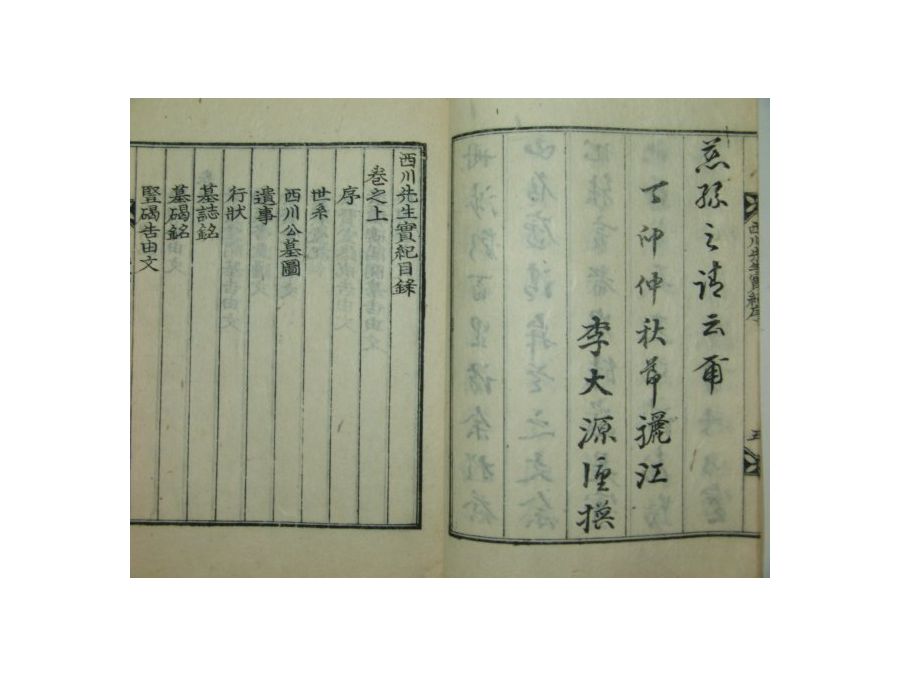 西川先生實紀序
五
慈孫之請云爾
丁卯仲秋節驪江
李大源謹撰
西川先生實紀目錄
卷之上
序
世系
西川公墓圖
遺事
行狀
墓誌銘
墓碣銘
竪碣告由文